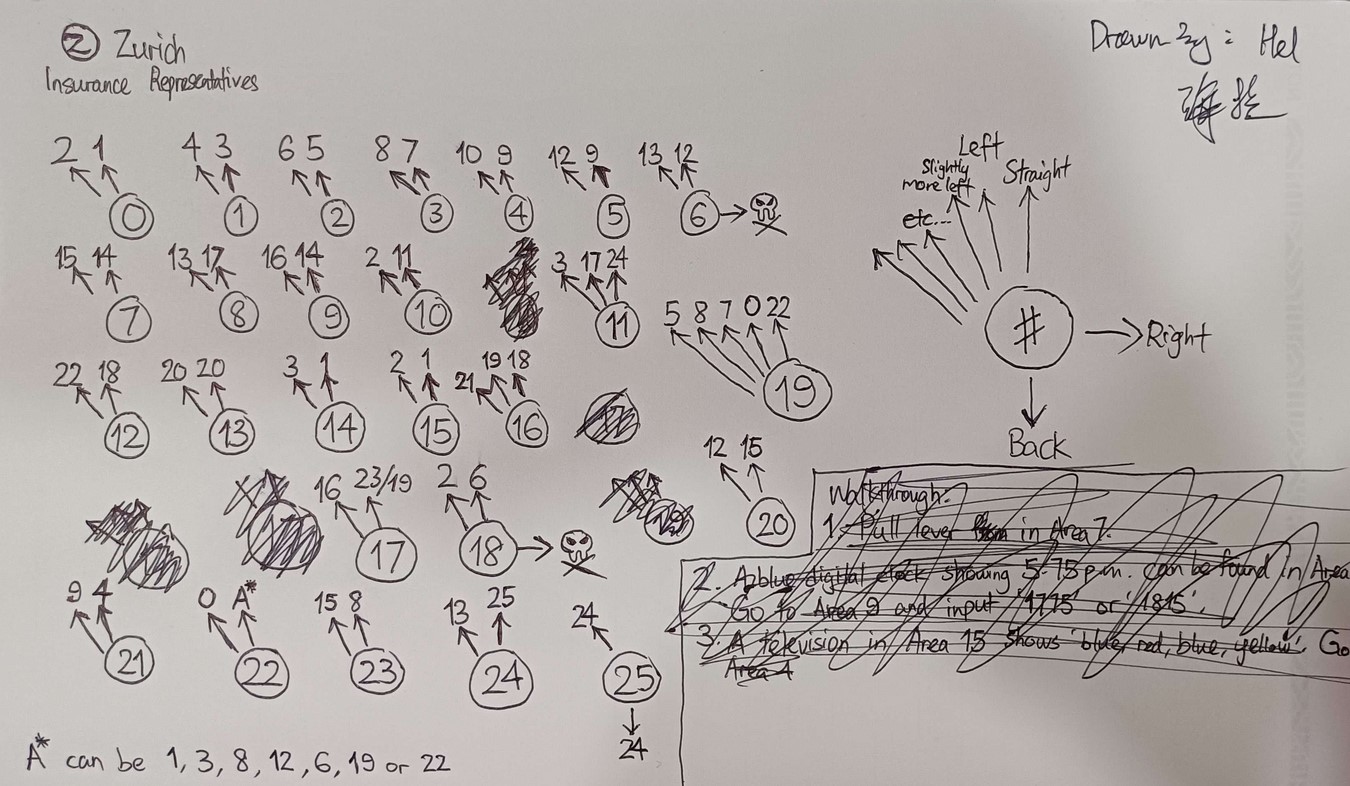 ② Zurich
Insurance Representatives
Drawn By: Hel
2 1
0
4 3
1
6 5
2
8 7
3
10 9
4
12 9
5
13 12
6
Left
Slightly
more left
Straight
etc...
#
Right
Back
15 14
7
13 17
8
16 14
9
2 11
10
3 17 24
11
5 8 7 0 22
19
22 18
12
20 20
13
3 1
14
2 1
15
21 19 18
16
17
16 23/19
17
2 6
18
12 15
20
Walkthrough:
1. Pull lever in Area 7.
2. A blue digital clock showing 5:75 p.m. can be found in Area
Go to Area 9 and input '1775' or '1815'.
3. A television in Area 15 shows 'blue, red, blue, yellow'. Go
Area 4
9 4
21
0 A*
22
15 8
23
13 25
24
24
25
24
A* can be 1, 3, 8, 12, 6, 19 or 22